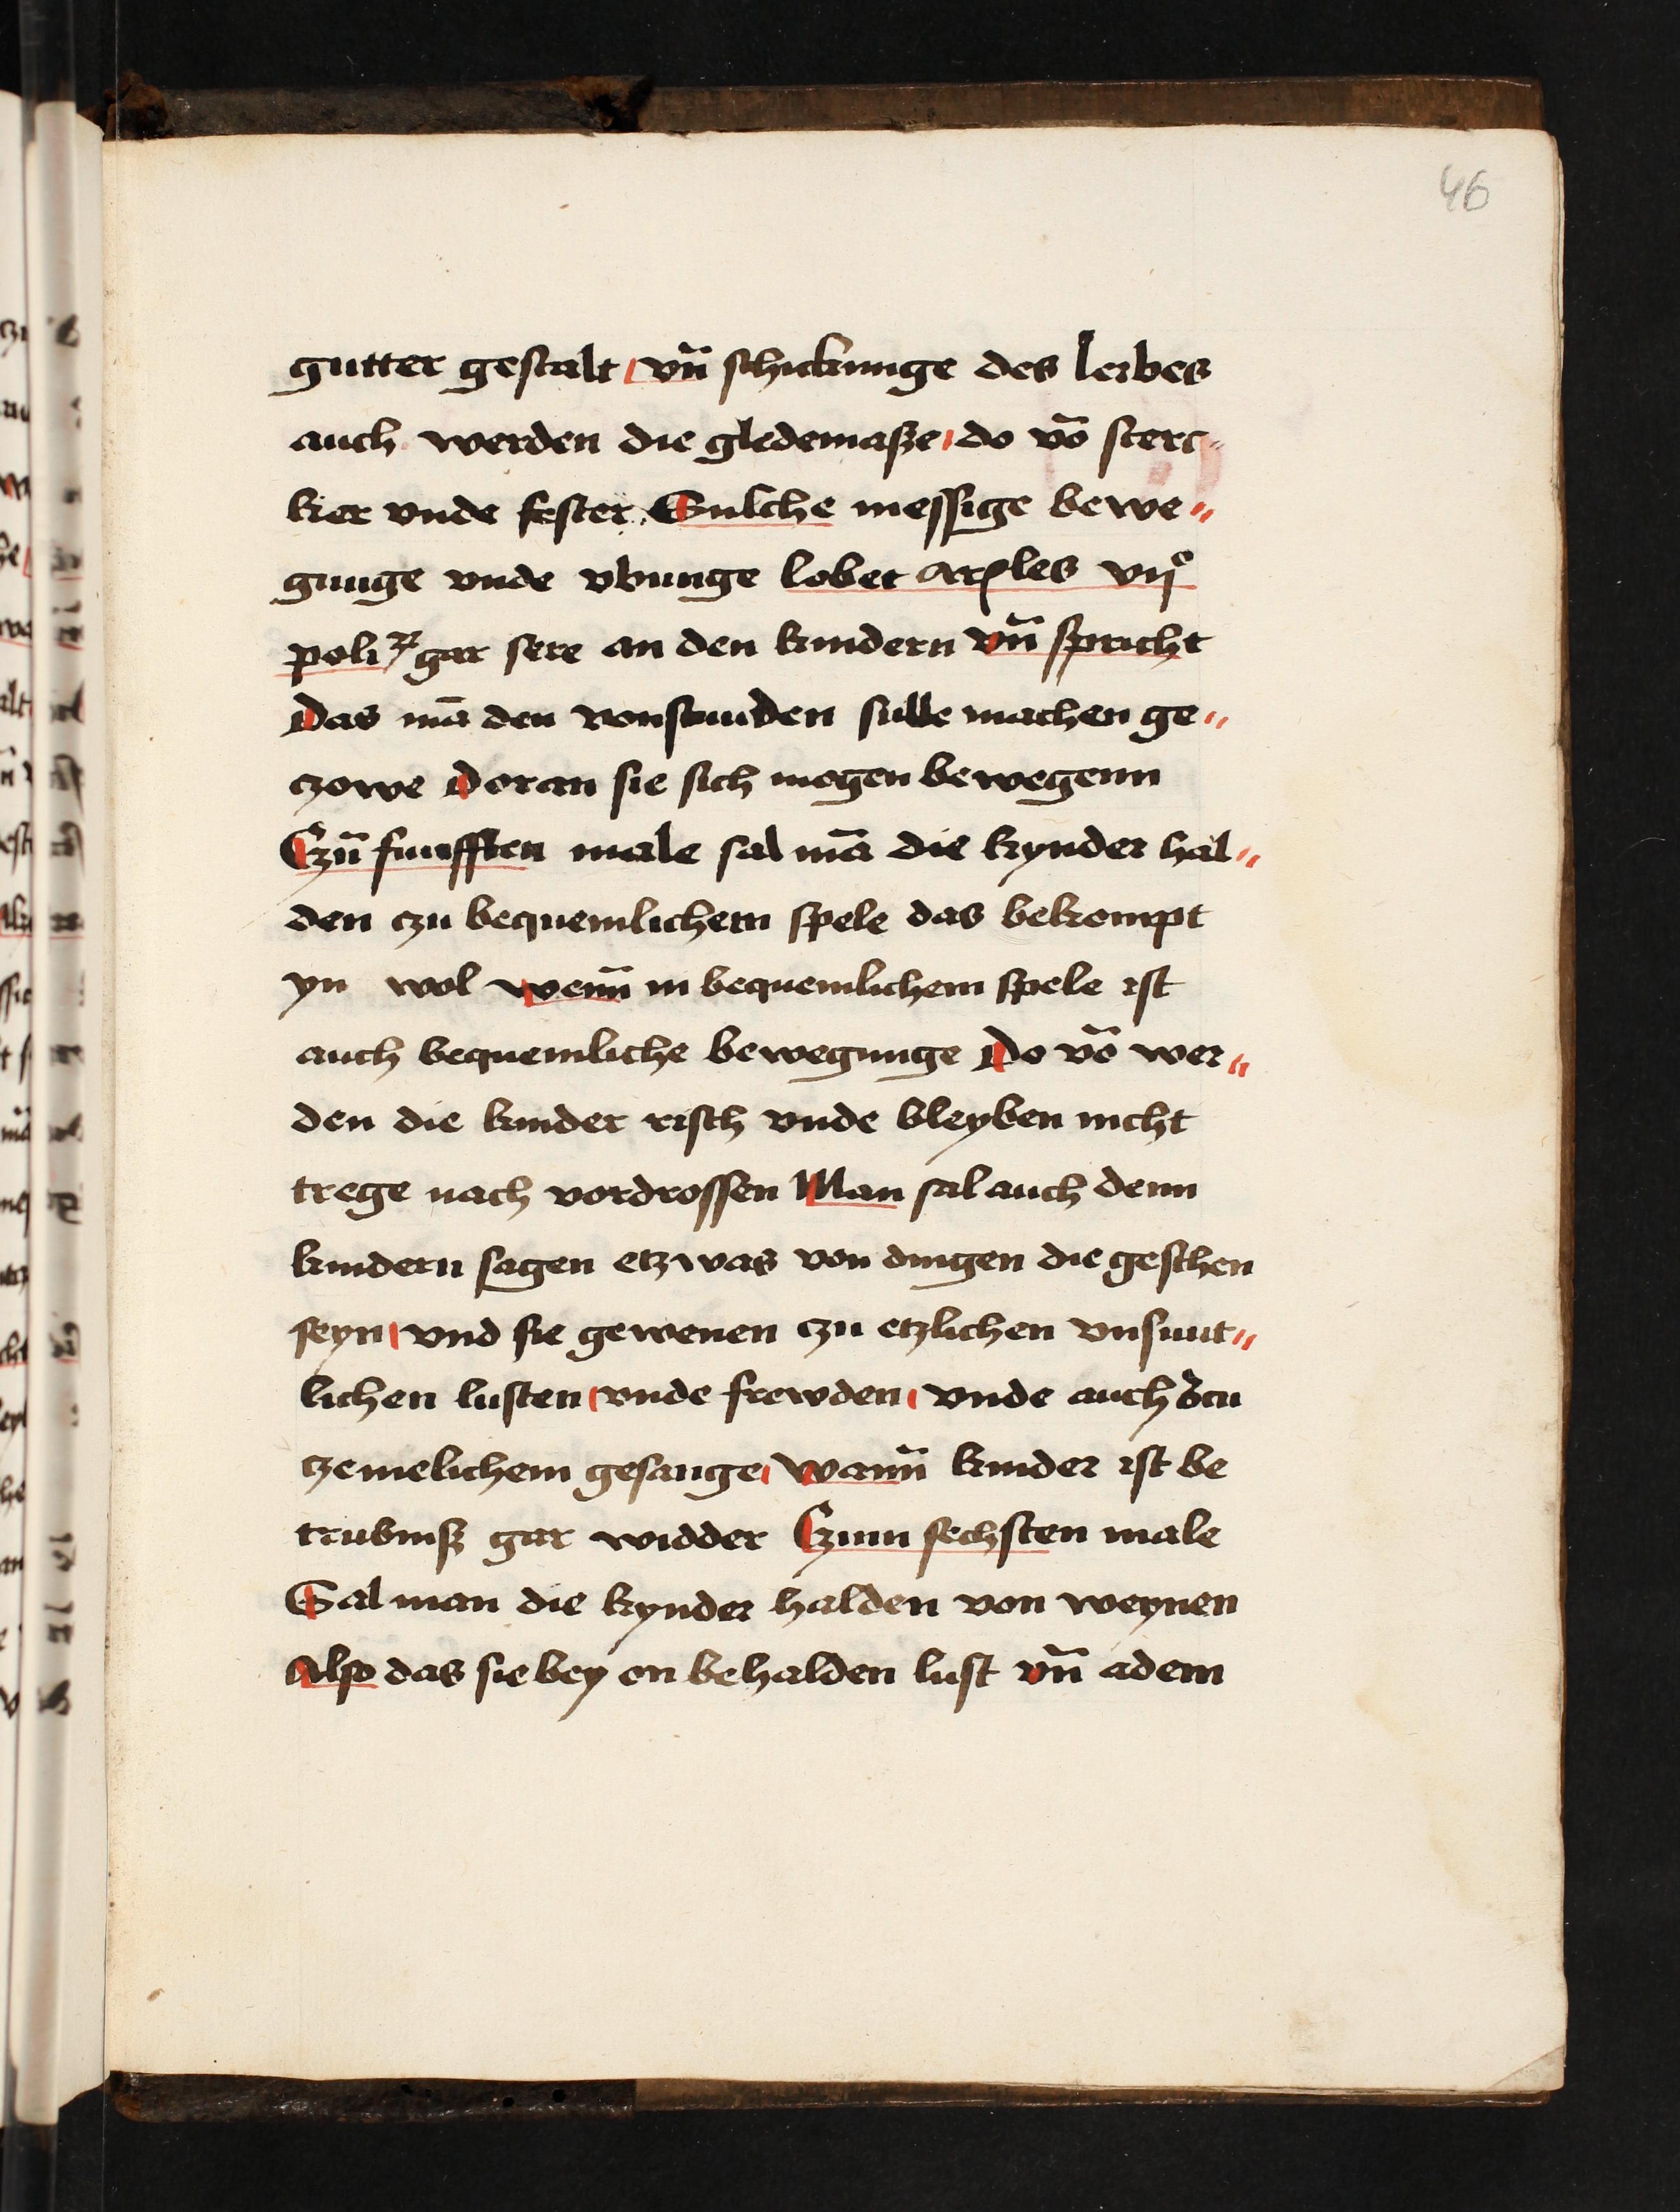 46
gutter gestalt vn̄ schickunge des leibes
auch werden die gledemasze do vō sterc-
ker vnde fester. Sulche messige bewe-
gunge vnde vbunge lobet arples vijº
poliꝝ gar sere an den kindern vn̄ spricht
Das mā den vonstunden sulle machen ge-
czowe doran sie sich mogen bewegenn
Czū funfften male sal mā die kynder hal-
den czu bequemlichem spele das bekompt
yn wol wenn̄ in bequemlichem spele ist
auch bequemliche bewegunge Do vō wer-
den die kinder risch vnde bleyben nicht
trege nach vordrossen Man sal auch denn
kindern sagen etzwas von dingen die geschen
seyn vnd sie gewenen czu etzlichen vnsunt-
lichen lusten vnde frewden vnde auch
czemelichem gesange wann̄ kinder ist be
trubnisz gar widder Czum sechsten male
Sal man die kynder halden von weynen
Also das sie bey en behalden lust vn̄ adem